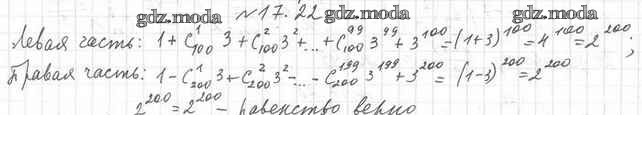 gdz.moda
№17.22
gdz.moda
gdz.moda
Левая часть: 1 + C¹₁₀₀ 3 + C²₁₀₀ 3² + ... + C⁹⁹₁₀₀ 3⁹⁹ + 3¹⁰⁰ = (1+3)¹⁰⁰ = 4¹⁰⁰ = 2²⁰⁰;
Правая часть: 1 - C¹₂₀₀ 3 + C²₂₀₀ 3² - ... - C¹⁹⁹₂₀₀ 3¹⁹⁹ + 3²⁰⁰ = (1-3)²⁰⁰ = 2²⁰⁰
2²⁰⁰ = 2²⁰⁰ – равенство верно